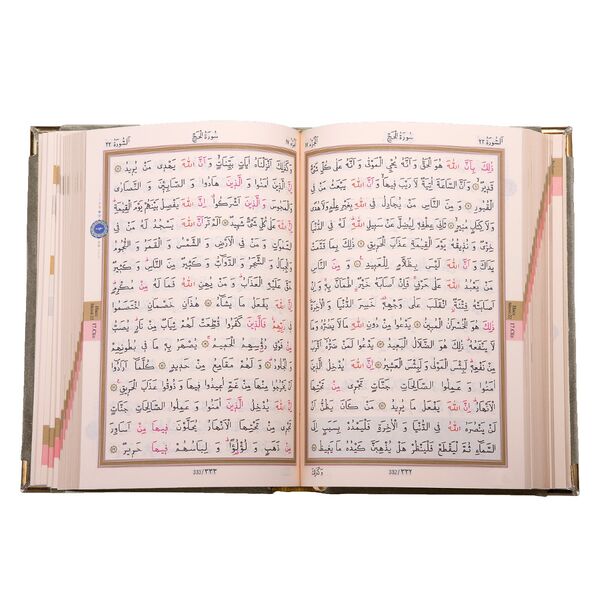 اَلسُّورَةُ ٢٢
سُورَةُ الْحَجِّ
اَلْجُزْءُ ١٧
ذٰلِكَ بِاَنَّ اللّٰهَ هُوَ الْحَقُّ وَ اَنَّهُ يُحْيِ الْمَوْتٰى وَ اَنَّهُ عَلٰى كُلِّ شَيْءٍ
قَدِيرٌ ۙ وَ اَنَّ السَّاعَةَ اٰتِيَةٌ لَا رَيْبَ فِيهَا ۙ وَ اَنَّ اللّٰهَ يَبْعَثُ مَنْ فِي
الْقُبُورِ وَ مِنَ النَّاسِ مَنْ يُجَادِلُ فِي اللّٰهِ بِغَيْرِ عِلْمٍ وَ لَا هُدًى
وَ لَا كِتَابٍ مُنِيرٍ ۙ ثَانِيَ عِطْفِهِ لِيُضِلَّ عَنْ سَبِيلِ اللّٰهِ ۜ لَهُ فِي الدُّنْيَا
خِزْيٌ وَ نُذِيقُهُ يَوْمَ الْقِيٰمَةِ عَذَابَ الْحَرِيقِ ذٰلِكَ بِمَا قَدَّمَتْ
يَدَاكَ وَ اَنَّ اللّٰهَ لَيْسَ بِظَلَّامٍ لِلْعَبِيدِ ۟ وَ مِنَ النَّاسِ مَنْ
يَعْبُدُ اللّٰهَ عَلٰى حَرْفٍ ۚ فَاِنْ اَصَابَهُ خَيْرٌ اطْمَاَنَّ بِهِ ۚ وَ اِنْ
اَصَابَتْهُ فِتْنَةٌ انْقَلَبَ عَلٰى وَجْهِهِ ۠ خَسِرَ الدُّنْيَا وَ الْاٰخِرَةَ
ذٰلِكَ هُوَ الْخُسْرَانُ الْمُبِينُ يَدْعُوا مِنْ دُونِ اللّٰهِ مَا لَا يَضُرُّهُ وَ مَا
لَا يَنْفَعُهُ ذٰلِكَ هُوَ الضَّلَالُ الْبَعِيدُ يَدْعُوا لَمَنْ ضَرُّهُ اَقْرَبُ
مِنْ نَفْعِهِ لَبِئْسَ الْمَوْلٰى وَ لَبِئْسَ الْعَشِيرُ اِنَّ اللّٰهَ يُدْخِلُ الَّذِينَ
اٰمَنُوا وَ عَمِلُوا الصَّالِحَاتِ جَنَّاتٍ تَجْرِي مِنْ تَحْتِهَا
الْاَنْهَارُ اِنَّ اللّٰهَ يَفْعَلُ مَا يُرِيدُ مَنْ كَانَ يَظُنُّ اَنْ
لَنْ يَنْصُرَهُ اللّٰهُ فِي الدُّنْيَا وَ الْاٰخِرَةِ فَلْيَمْدُدْ بِسَبَبٍ اِلَى
السَّمَاءِ ثُمَّ لْيَقْطَعْ فَلْيَنْظُرْ هَلْ يُذْهِبَنَّ كَيْدُهُ مَا يَغِيظُ
332/٣٣٢
وَكَذٰلِكَ
اَلسُّورَةُ ٢٢
سُورَةُ الْحَجِّ
وَ كَذٰلِكَ اَنْزَلْنَاهُ اٰيَاتٍ بَيِّنَاتٍ وَ اَنَّ اللّٰهَ يَهْدِي مَنْ يُرِيدُ
اِنَّ الَّذِينَ اٰمَنُوا وَ الَّذِينَ هَادُوا وَ الصَّابِـِٔينَ وَ النَّصَارٰى
وَ الْمَجُوسَ وَ الَّذِينَ اَشْرَكُوا اِنَّ اللّٰهَ يَفْصِلُ بَيْنَهُمْ يَوْمَ الْقِيٰمَةِ
اِنَّ اللّٰهَ عَلٰى كُلِّ شَيْءٍ شَهِيدٌ اَلَمْ تَرَ اَنَّ اللّٰهَ يَسْجُدُ لَهُ مَنْ فِي
السَّمٰوَاتِ وَ مَنْ فِي الْاَرْضِ وَ الشَّمْسُ وَ الْقَمَرُ وَ النُّجُومُ
وَ الْجِبَالُ وَ الشَّجَرُ وَ الدَّوَابُّ وَ كَثِيرٌ مِنَ النَّاسِ وَ كَثِيرٌ
حَقَّ عَلَيْهِ الْعَذَابُ وَ مَنْ يُهِنِ اللّٰهُ فَمَا لَهُ مِنْ مُكْرِمٍ
اِنَّ اللّٰهَ يَفْعَلُ مَا يَشَاءُ هٰذَانِ خَصْمَانِ اخْتَصَمُوا
فِي رَبِّهِمْ فَالَّذِينَ كَفَرُوا قُطِّعَتْ لَهُمْ ثِيَابٌ مِنْ نَارٍ يُصَبُّ
مِنْ فَوْقِ رُؤُسِهِمُ الْحَمِيمُ يُصْهَرُ بِهِ مَا فِي بُطُونِهِمْ
وَ الْجُلُودُ وَ لَهُمْ مَقَامِعُ مِنْ حَدِيدٍ كُلَّمَا اَرَادُوا
اَنْ يَخْرُجُوا مِنْهَا مِنْ غَمٍّ اُعِيدُوا فِيهَا وَ ذُوقُوا عَذَابَ الْحَرِيقِ
اِنَّ اللّٰهَ يُدْخِلُ الَّذِينَ اٰمَنُوا وَ عَمِلُوا الصَّالِحَاتِ جَنَّاتٍ
تَجْرِي مِنْ تَحْتِهَا الْاَنْهَارُ يُحَلَّوْنَ فِيهَا مِنْ اَسَاوِرَ
مِنْ ذَهَبٍ وَ لُؤْلُؤًا وَ لِبَاسُهُمْ فِيهَا حَرِيرٌ
333/٣٣٣